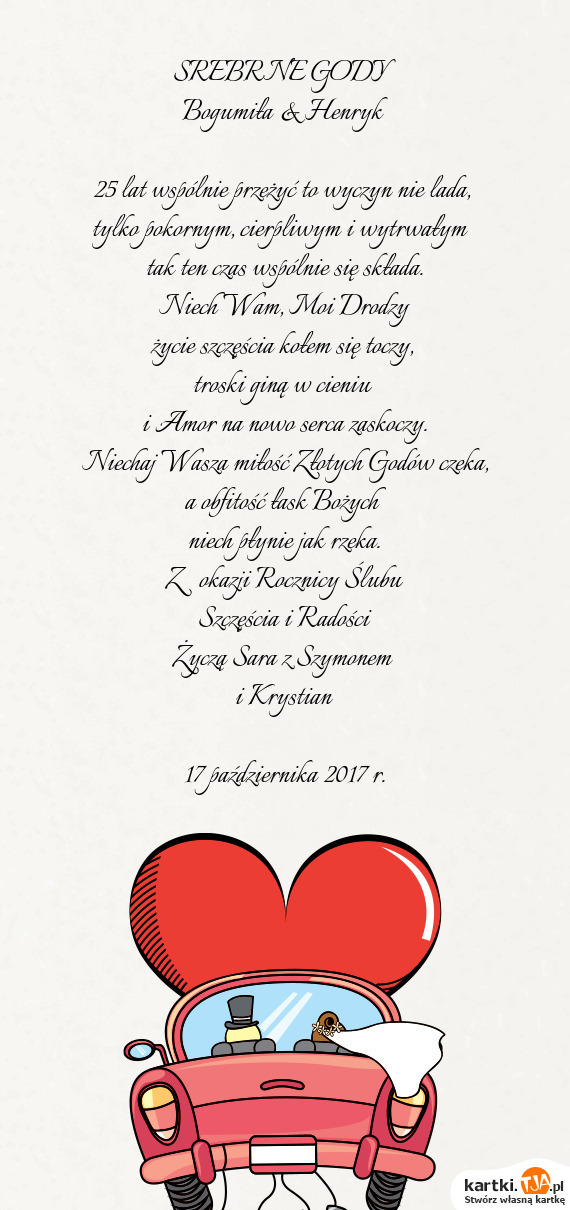 SREBRNE GODY
Bogumiła & Henryk
25 lat wspólnie przeżyć to wyczyn nie lada,
tylko pokornym, cierpliwym i wytrwałym
tak ten czas wspólnie się składa.
Niech Wam, Moi Drodzy
życie szczęścia kołem się toczy,
troski giną w cieniu
i Amor na nowo serca zaskoczy.
Niechaj Wasza miłość Złotych Godów czeka,
a obfitość łask Bożych
niech płynie jak rzeka.
Z okazji Rocznicy Ślubu
Szczęścia i Radości
Życzą Sara z Szymonem
i Krystian
17 października 2017 r.
kartki.TJA.pl
Stwórz własną kartkę